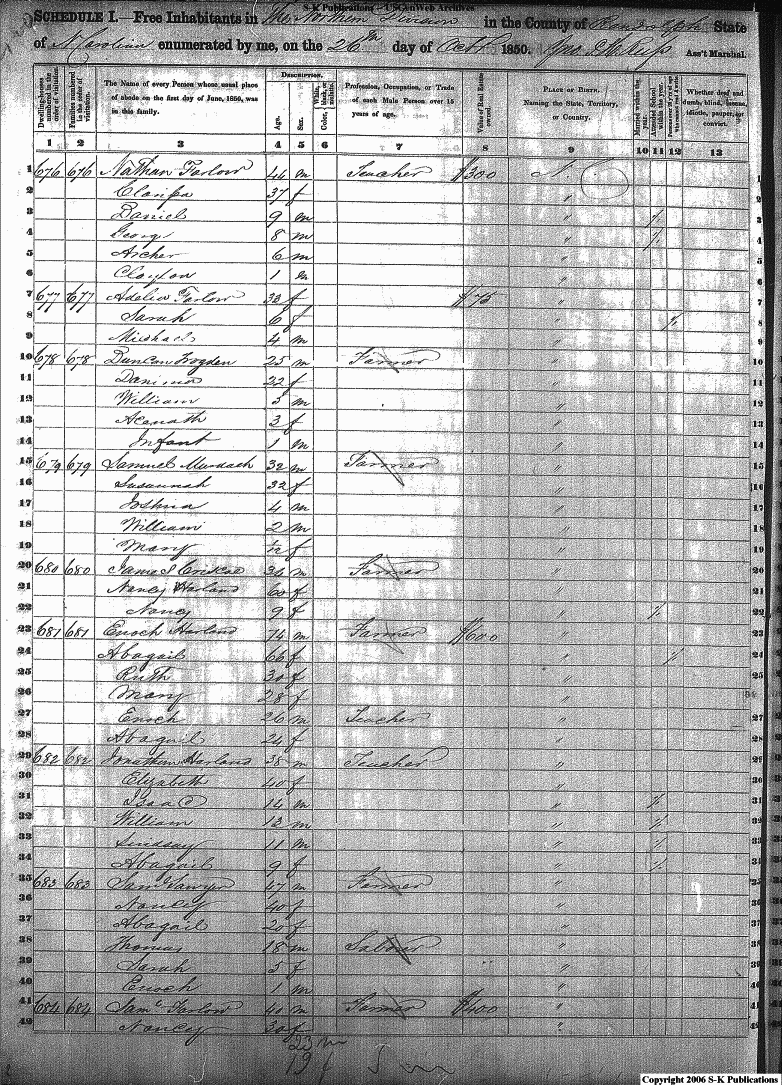 S-K Publications - USGenWeb Archives
SCHEDULE I.—Free Inhabitants in The Northern Division in the County of Randolph State
of N Carolina enumerated by me, on the 26th day of Octr 1850. Ass't Marshal.
Dwelling-houses numbered in the order of visitation.
Families numbered in the order of visitation.
The Name of every Person whose usual place of abode on the first day of June, 1850, was in this family.
DESCRIPTION.
Age.
Sex.
White, black, or mulatto.
Color,
Profession, Occupation, or Trade of each Male Person over 15 years of age.
Value of Real Estate owned.
PLACE OF BIRTH.
Naming the State, Territory, or Country.
Married within the year.
Attended School within the year.
Whether deaf and dumb, blind, insane, idiotic, pauper, or convict.
1 2 3 4 5 6 7 8 9 10 11 12 13
1 676 676 Nathan Farlow 44 m Teacher $300 N. C 1
2 Clarissa 37 f " 2
3 Daniel 9 m " / 3
4 George 8 m " / 4
5 Archer 6 m " 5
6 Clayton 1 m " 6
7 677 677 Adelia Farlow 33 f $75 " 7
8 Sarah 6 f " / 8
9 Michael 4 m " 9
10 678 678 Duncan Frogden 25 m Farmer " 10
11 22 f " 11
12 William 5 m " 12
13 Acenath 3 f " 13
14 Infant 1 m " 14
15 679 679 Samuel Murdach 32 m Farmer " 15
16 Susannah 32 f " 16
17 Joshua 4 m " 17
18 William 2 m " 18
19 Mary f " 19
20 680 680 James 34 m Farmer " 20
21 Nancy Harland 60 f " 21
22 Nancy 9 f " / 22
23 681 681 Enoch Harland 74 m Farmer $600 " 23
24 Abagail 66 f " / 24
25 Ruth 30 f " 25
26 Mary 28 f " 26
27 Enoch 26 m Teacher " 27
28 Abagail 24 f " 28
29 682 682 Jonathan Harland 38 m Teacher " 29
30 Elizabeth 40 f " 30
31 Isaac 14 m " / 31
32 William 12 m " / 32
33 Lindsay 11 m " / 33
34 Abagail 9 f " / 34
35 683 683 Saml Sawyer 47 m Farmer " 35
36 Nancy 40 f " 36
37 Abagail 20 f " 37
38 Thomas 18 m Labour " 38
39 Sarah 5 f " 39
40 Enoch 1 m " 40
41 684 684 Saml Farlow 40 m Farmer $400 " 41
42 Nancy 30 f " 42
23 m
19 f
Copyright 2006 S-K Publications